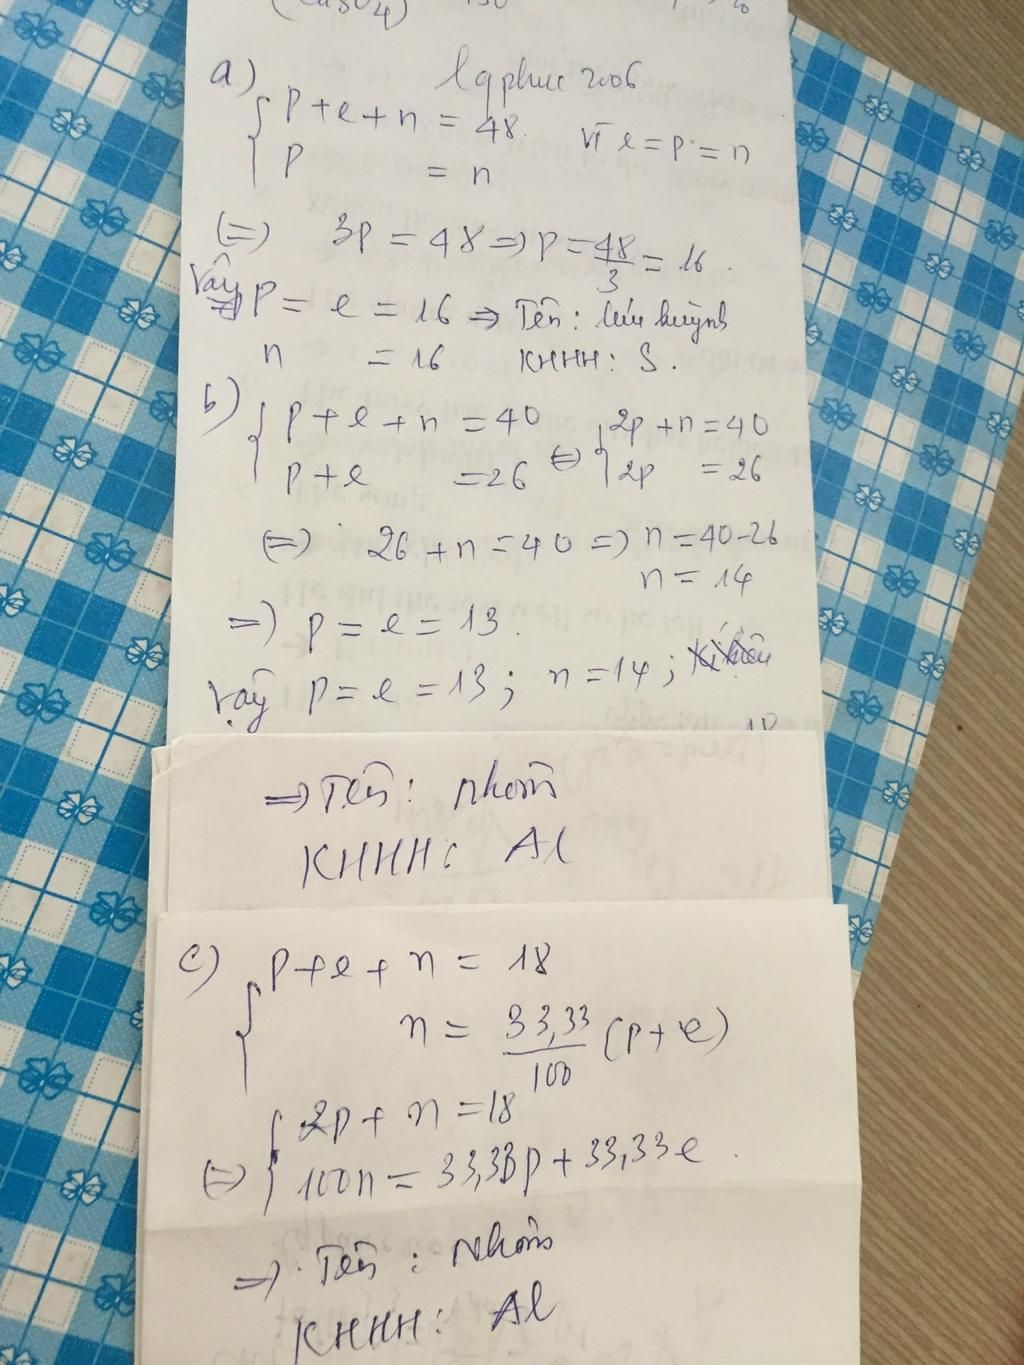 (CuSO4)
a) lqphuc 2006
p + e + n = 48 vì e = p = n
p = n
(=) 3p = 48 => p = 48/3 = 16.
Vậy
=> p = e = 16 => Tên: lưu huỳnh
n = 16 KHHH: S.
b) p + e + n = 40 2p + n = 40
p + e = 26 <=> 2p = 26
(=) 26 + n = 40 => n = 40-26
n = 14
=) p = e = 13.
Vậy p = e = 13; n = 14;
=> Tên: Nhôm
KHHH: Al
c) p + e + n = 18
n = 33,33/100 (p + e)
2p + n = 18
(=) 100n = 33,33p + 33,33e.
=> Tên: Nhôm
KHHH: Al